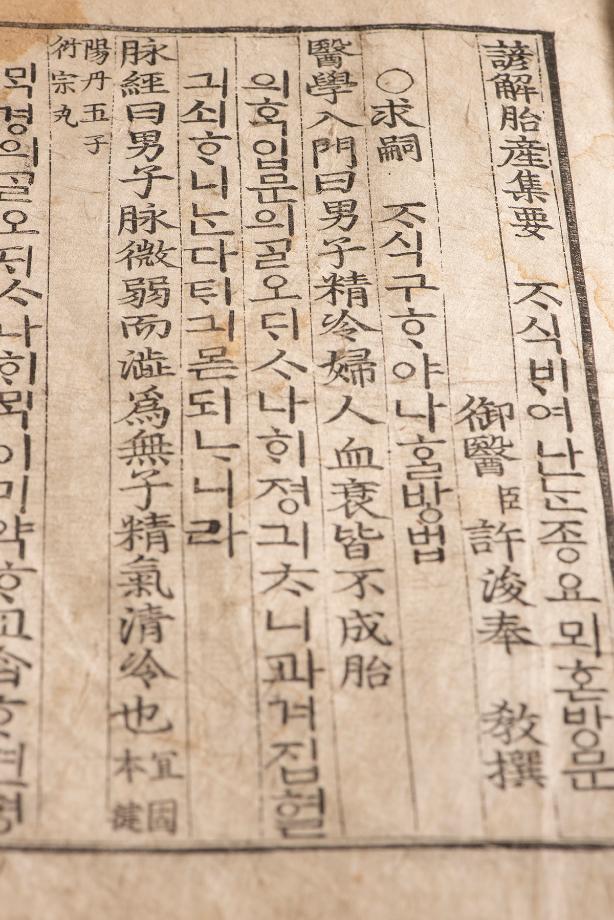 諺解胎産集要 ᄌᆞ식ᄇᆡ여난ᄂᆞᆫ죵요뫼혼방문
御醫臣許浚奉 敎撰
○求嗣 ᄌᆞ식구ᄒᆞ야나ᄒᆞᆯ방법
醫學入門曰男子精冷婦人血衰皆不成胎
의ᄒᆞᆨ입문의ᄀᆞᆯ오ᄃᆡᄉᆞ나ᄒᆡ졍긔ᄎᆞ니과겨집혈
긔쇠ᄒᆞ니ᄂᆞᆫ다ᄐᆡ긔몯되ᄂᆞ니라
脉經曰男子脉微弱而澁爲無子精氣清冷也
宜固
本健
陽丹五子
衍宗丸
ᄆᆡᆨ경의ᄀᆞᆯ오ᄃᆡᄉᆞ나ᄒᆡᄆᆡᆨ이미약ᄒᆞ고습ᄒᆞ